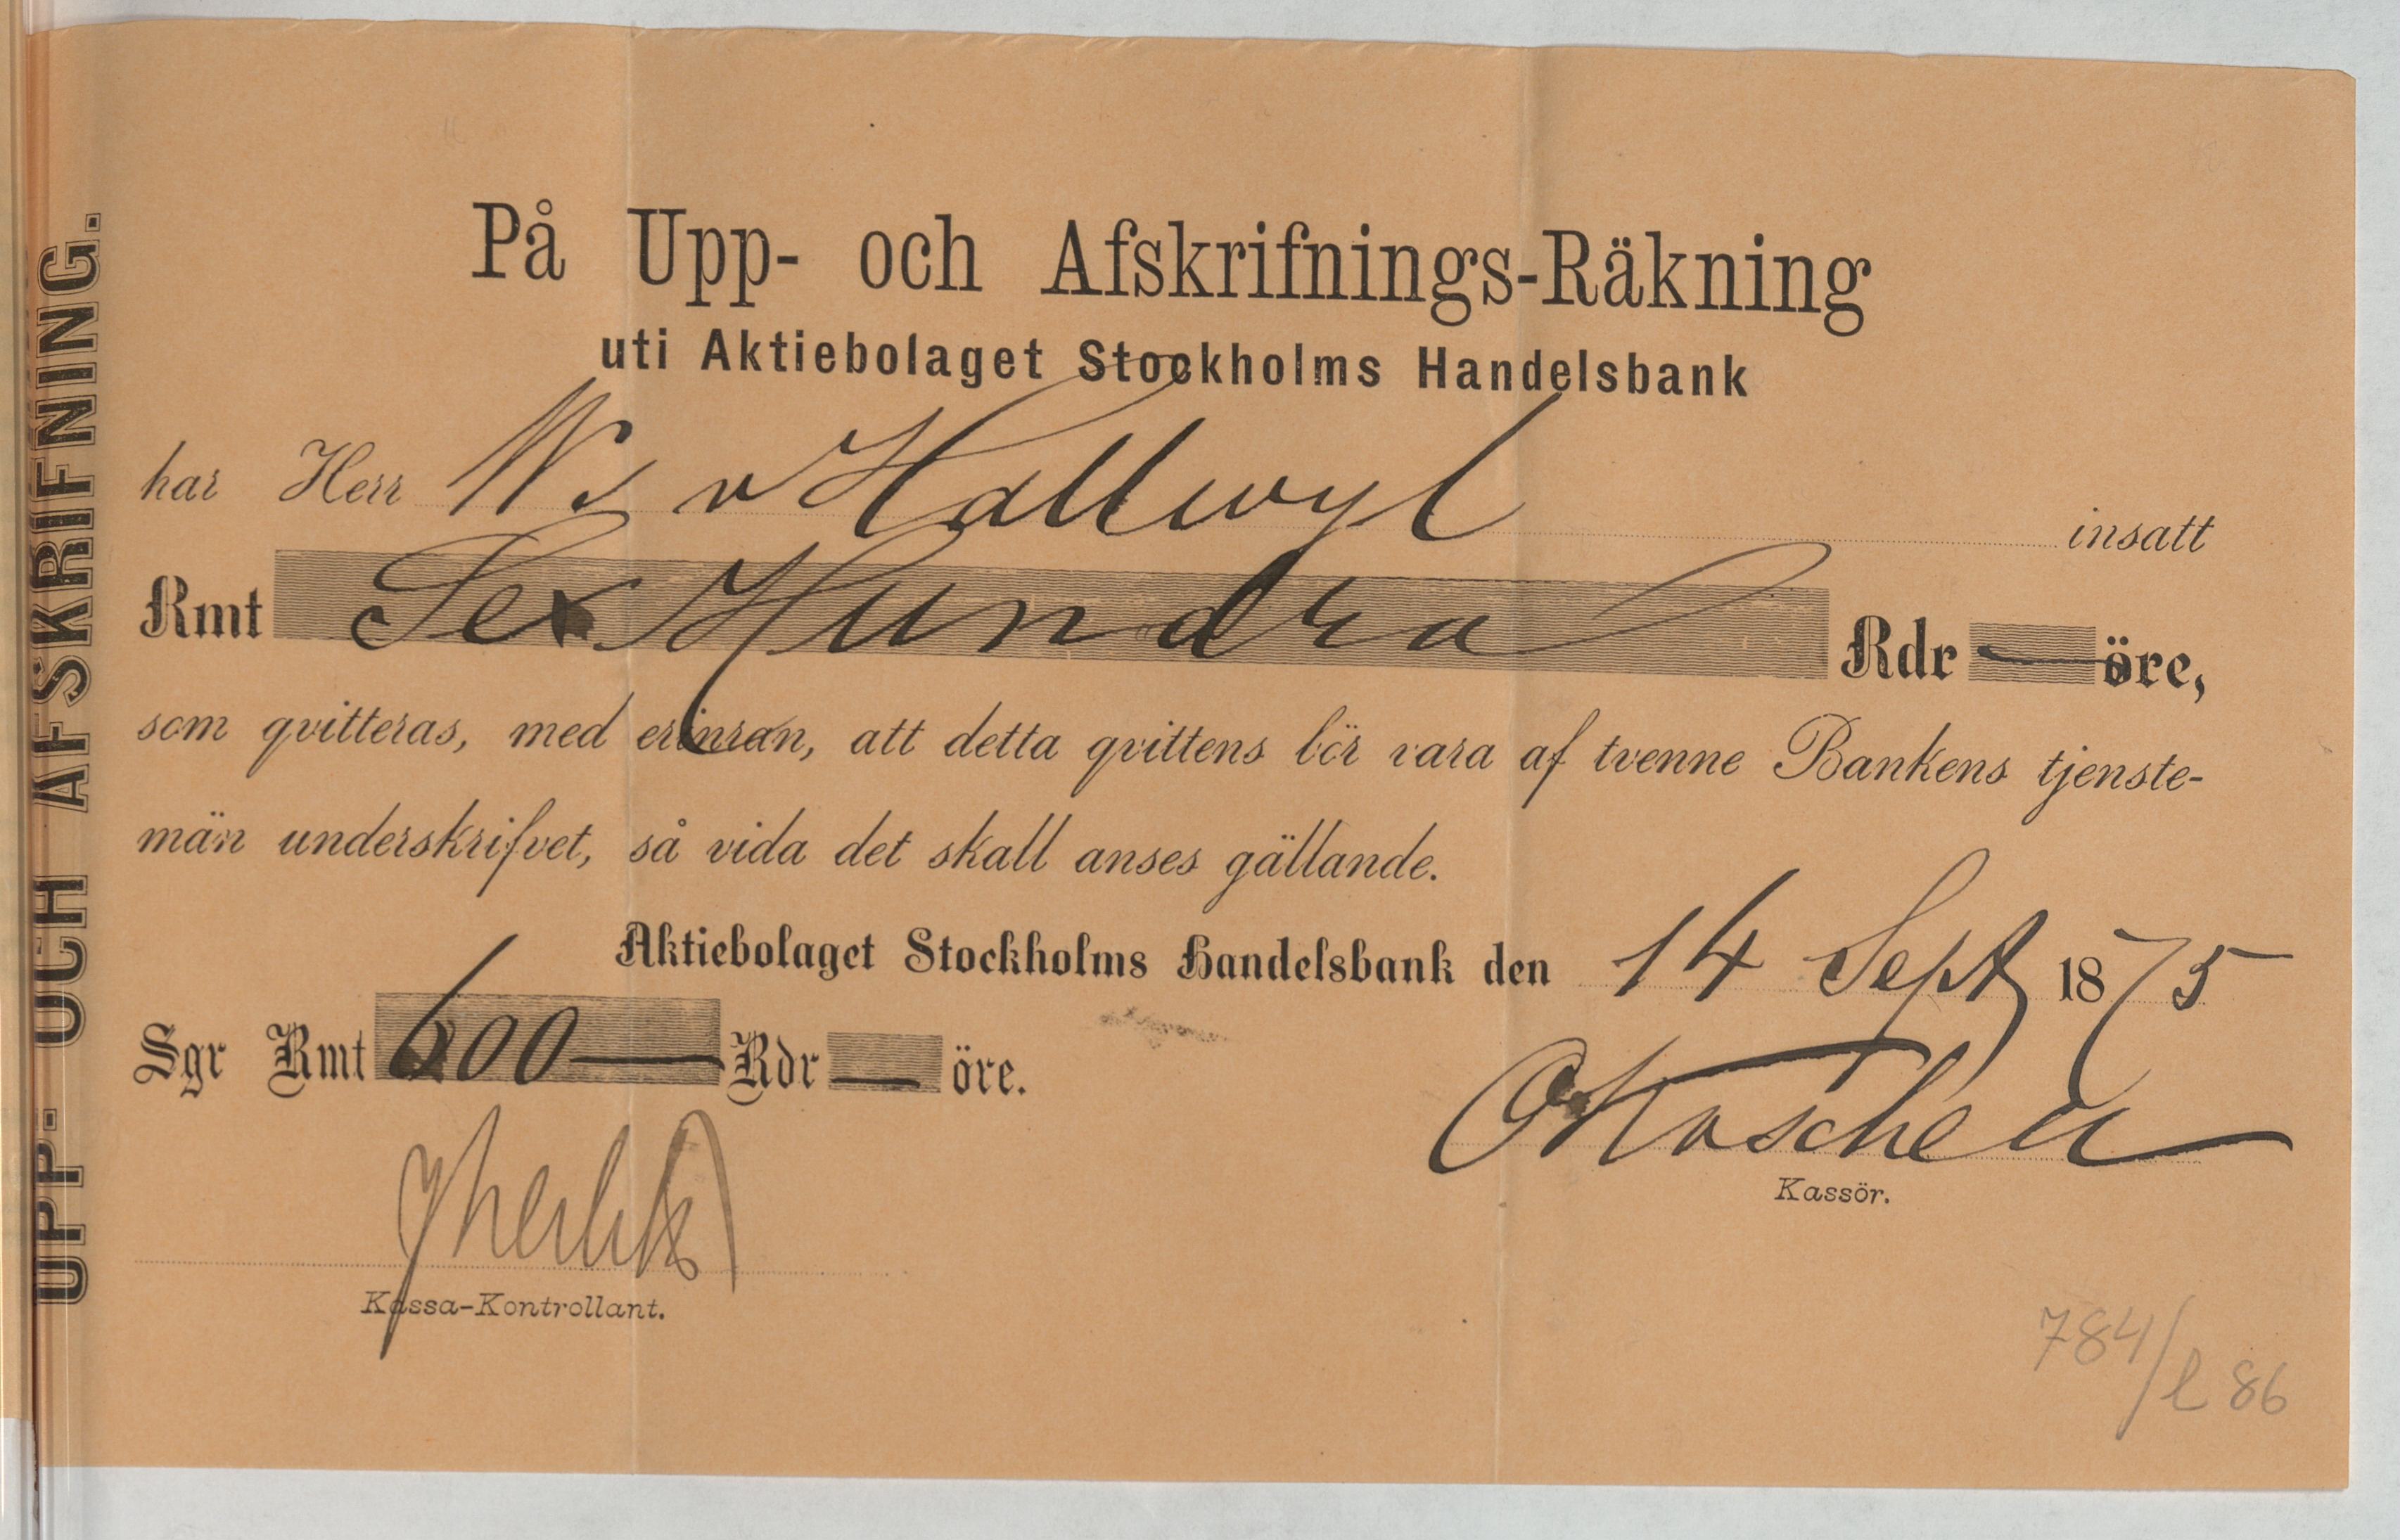 UPP- OCH AFSKRIFNING.
På Upp- och Afskrifnings-Räkning
uti Aktiebolaget Stockholms Handelsbank
har Herr W. v Hallwyl insatt
Rmt Sex Hundra Rdr — öre,
som qvitteras, med erinran, att detta qvittens bör vara af tvenne Bankens tjenste-
män underskrifvet, så vida det skall anses gällande.
Aktiebolaget Stockholms Handelsbank den 14 Sept 1875
Sgr Rmt 600 — Rdr — öre.
Kassör.
Kassa-Kontrollant.
784/l 86